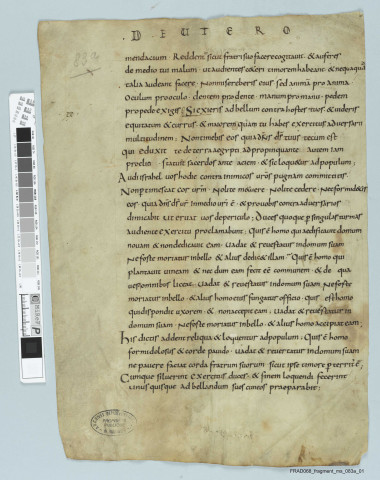 DEUTERO
mendacium Reddent sicut fratri suo facere cogitauit · & auferes
de medio tui malum · ut audientes ceteri timorem habeant & nequaquā
talia audeant facere · Non misereberis eius sed animā pro anima
Oculum pro oculo · dentem pro dente · manum pro manu · pedem
pro pede exiges · Si exieris ad bellum contra hostes tuos & uideris
equitatum & currus · & maiorem quam tu habes exercitus aduersarii
multitudinem · Non timebis eos quia dn̄s ds̄ tuus tecum est
qui eduxit te de terra aegypti adpropinquante autem iam
proelio · stabit sacerdos ante aciem · & sic loquetur ad populum ·
Audi israhel uos hodie contra inimicos ur̄os pugnam committitis ·
Non pertimescat cor ur̄m · Nolite metuere · Nolite cedere · nec formidetis
eos quia dn̄s ds̄ ur̄ in medio ur̄i ē · & pro uobis contra aduersarios
dimicabit ut eruat uos de periculo · Duces quoque per singulas turmas
audiente exercitu proclamabunt · Quis ē homo qui aedificauit domum
nouam & non dedicauit eam · uadat & reuertatur in domum suam
Ne forte moriatur in bello · & alius dedic& illam · Quis ē homo qui
plantauit uineam & nec dum eam fecit eē communem · & de qua
uesci omnibus liceat · uadat & reuertatur in domum suam Ne forte
moriatur in bello · & alius homo eius fungatur officio · Quis est homo
qui dispondit uxorem · & non accepit eam · uadat & reuertatur in
domum suam · Ne forte moriatur in bello · & alius homo accipiat eam ·
His dictis addent reliqua & loquentur ad populum · Quis ē homo
formidolosus & corde pauido · uadat & reuertatur in domum suam
ne pauere faciat corda fratrum suorum sicut ipse timore perterrit ē
Cumque siluerint exercitus duces · & finem loquendi fecerint
unus quisque ad bellandum suos cuneos praeparabit ·
FRAD068_fragment_ms_083a_01